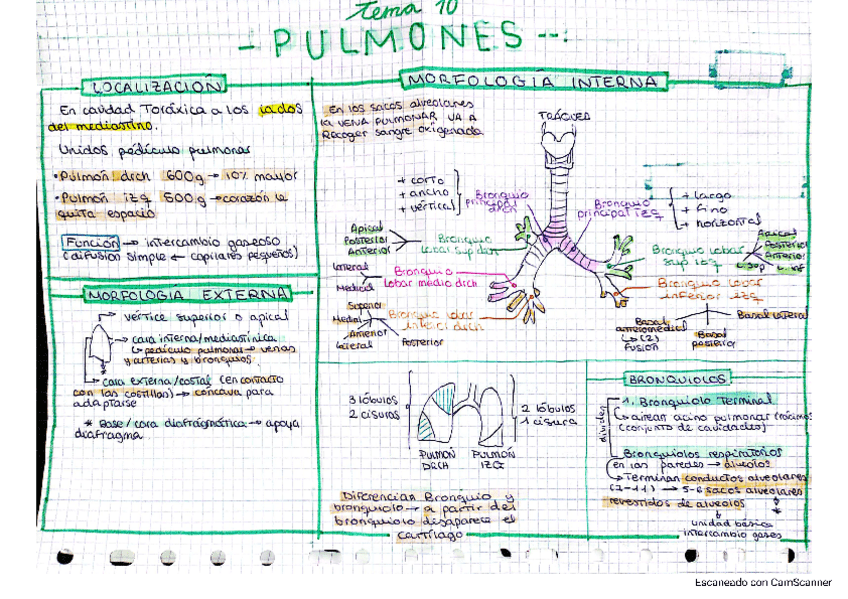 tema 10
- PULMONES --:
LOCALIZACIÓN
En cavidad Torácica a los lados
del mediastino.
Unidos pedículo pulmonar
• Pulmón drch 600g → 10% mayor
• Pulmón izq 500g → corazón le
quita espacio
Función → intercambio gaseoso
(difusión simple ← capilares pequeños)
MORFOLOGIA EXTERNA
vértice superior o apical
cara interna/mediastínica
↳ pedículo pulmonar → venas
y arterias y bronquios.
cara externa/costal (en contacto
con las costillas) → concava para
adaptarse
* Base/cara diafragmática → apoya
diafragma
MORFOLOGÍA INTERNA
En los sacos alveolares
la VENA PULMONAR VA A
Recoger sangre oxigenada
TRÁQUEA
+ corto
+ ancho
+ vertical
Bronquio
principal drch
Bronquio
principal izq
+ largo
+ fino
+ horizontal
Apical
Posterior
Anterior
Bronquio
lobar sup drch
Lateral
Medial
Bronquio
lobar medio drch
Superior
Medial
Anterior
Lateral
Posterior
Bronquio lobar
inferior drch
Bronquio lobar
sup izq
Apical
Posterior
Anterior
L. sup L. inf
Bronquio lobar
inferior izq
Basal
anteromedial
↳ (2)
fusión
Basal
posterior
Basal lateral
3 lóbulos
2 cisuras
2 lóbulos
1 cisura
PULMÓN
DRCH
PULMÓN
IZQ
Diferencian Bronquio y
bronquiolo → a partir del
bronquiolo desaparece el
cartílago
BRONQUIOLOS
dividen
1. Bronquiolo Terminal
↳ airean acino pulmonar
(conjunto de cavidades)
Bronquiolos respiratorios
en las paredes → alveolos
→ Terminan conductos alveolares
(2-11) → 5-6 sacos alveolares
revestidos de alveolos
unidad básica
intercambio gases
Escaneado con CamScanner